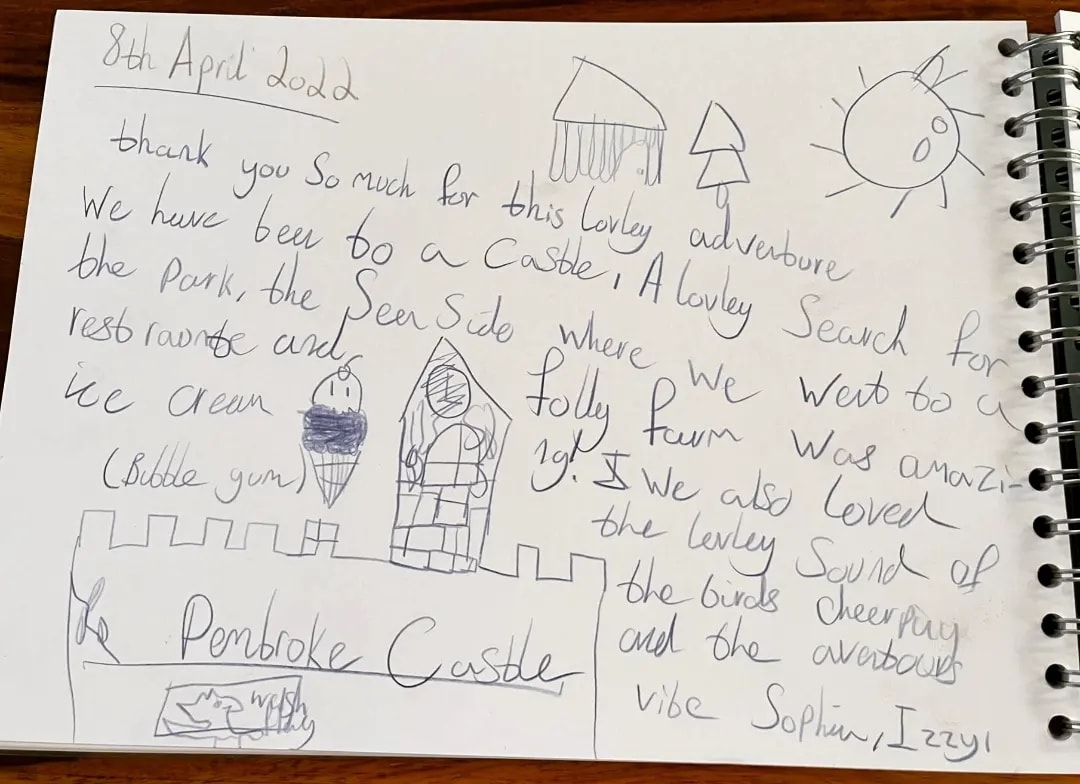 8th April 2022
thank you So much for this lovley adventure
We have been to a Castle, A lovley Search for
the Park, the Seen Side where we went to a
restraonte and
ice cream
(Bubble gum)
folly farm was amazi-
ng! We also loved
the lovley Sound of
the birds cheerping
and the
vibe Sophia, Izzy,
Pembroke Castle
welsh
flag